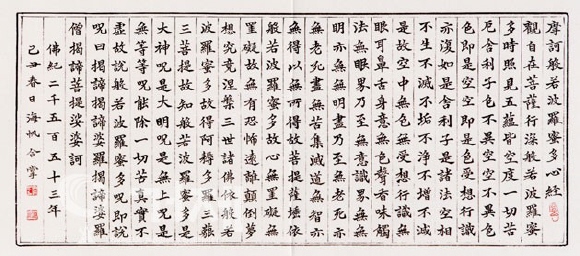 摩訶般若波羅蜜多心經
觀自在菩薩行深般若波羅蜜
多時照見五蘊皆空度一切苦
厄舍利子色不異空空不異色
色即是空空即是色受想行識
亦復如是舍利子是諸法空相
不生不滅不垢不淨不增不減
是故空中無色無受想行識無
眼耳鼻舌身意無色聲香味觸
法無眼界乃至無意識界無無
明亦無無明盡乃至無老死亦
無老死盡無苦集滅道無智亦
無得以無所得故菩提薩埵依
般若波羅蜜多故心無罣礙無
罣礙故無有恐怖遠離顛倒夢
想究竟涅槃三世諸佛依般若
波羅蜜多故得阿耨多羅三藐
三菩提故知般若波羅蜜多是
大神呪是大明呪是無上呪是
無等等呪能除一切苦真實不
虛故說般若波羅蜜多呪即說
呪曰揭諦揭諦婆羅揭諦婆羅
僧揭諦菩提娑婆訶
佛紀二千五百五十三年
己丑春日海帆合掌